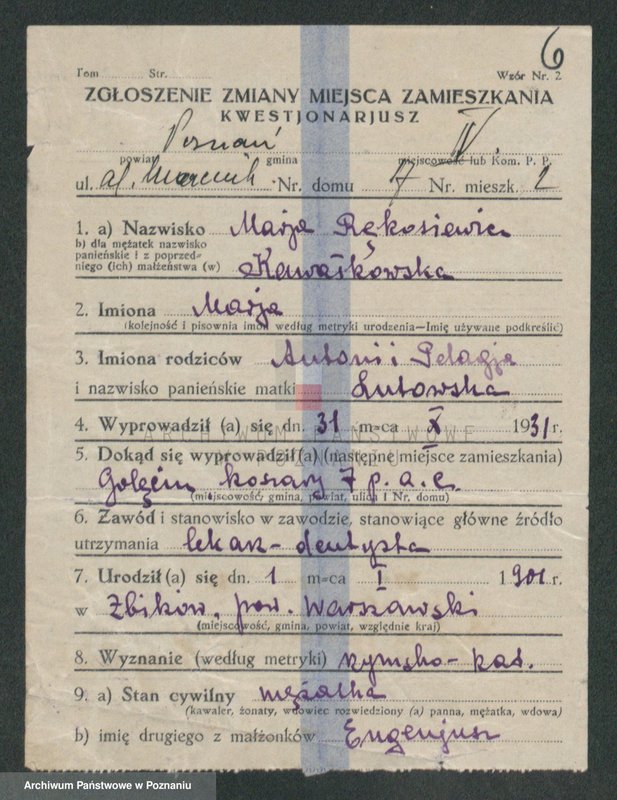 6
Tom Str. Wzór Nr. 2
ZGŁOSZENIE ZMIANY MIEJSCA ZAMIESZKANIA
KWESTJONARJUSZ
Poznań IV.
powiat gmina miejscowość lub Kom. P. P.
ul. Nr. domu 7 Nr. mieszk. 2
1. a) Nazwisko Marja Rękosiewicz
b) dla mężatek nazwisko
panieńskie i z poprzed-
niego (ich) małżeństwa (w) Kawałkowska
2. Imiona Marja
(kolejność i pisownia imon według metryki urodzenia—Imię używane podkreślić)
3. Imiona rodziców Antoni i Pelagja
i nazwisko panieńskie matki Lutowska
4. Wyprowadził (a) się dn. 31 m-ca X 1931 r.
ARCHIWUM PAŃSTWOWE
W POZNANIU
5. Dokąd się wyprowadził (a) (następne miejsce zamieszkania)
Golęcin koszary 7 p. a. c.
(miejscowość, gmina, powiat, ulica i Nr. domu)
6. Zawód i stanowisko w zawodzie, stanowiące główne źródło
utrzymania lekarz-dentysta
7. Urodził (a) się dn. 1 m-ca I 1901 r.
w Żbików, pow. Warszawski
(miejscowość, gmina, powiat, względnie kraj)
8. Wyznanie (według metryki) rzymsko-kat.
9. a) Stan cywilny mężatka
(kawaler, żonaty, wdowiec rozwiedziony (a) panna, mężatka, wdowa)
b) imię drugiego z małżonków Eugenjusz
Archiwum Państwowe w Poznaniu